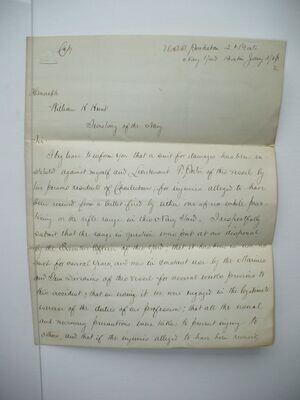 Copy
Navy Yard Boston Jany
Honorable
William H Hunt
Secretary of the Navy
Sir
I beg leave to inform you that a suit for damages has been in-
stituted against myself and Lieutenant of this vessel by
residents of Charlestown, for injuries alleged to have
been received from a bullet fired by either one of us while prac-
ticing on the rifle range in this Navy Yard. I respectfully
submit that the range in question was put at our disposal
by the Officer of this yard, that it has been in
for several years, and was in constant use by the Marines
and Divisions of this vessel for several weeks previous to
this accident; that in using it we were engaged in the legitimate
exercise of the duties of our profession; that all the usual
and necessary precautions were taken to prevent injury to
others, and that if the injuries alleged to have been